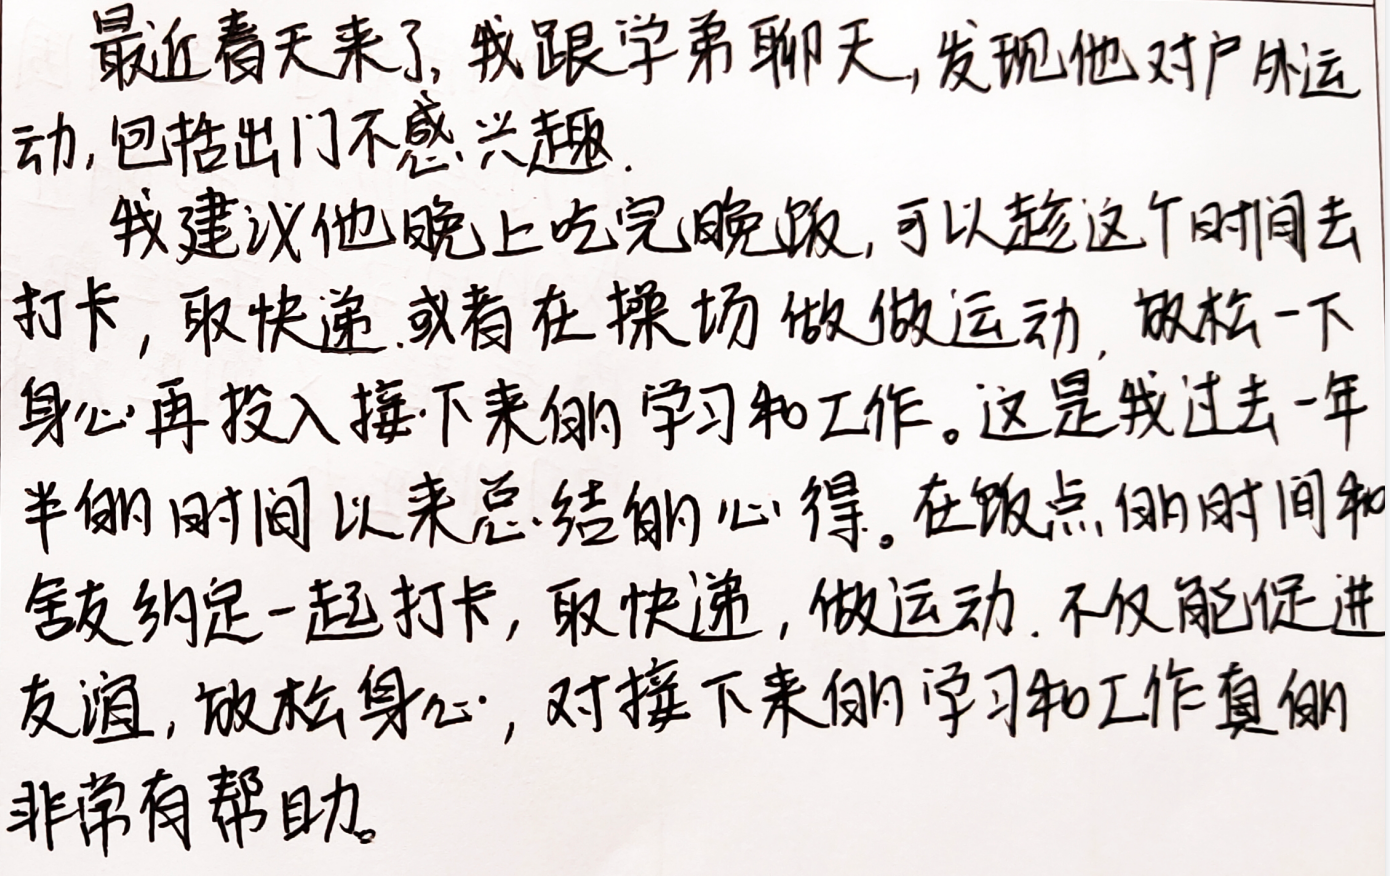 最近春天来了,我跟学弟聊天,发现他对户外运
动,包括出门不感兴趣.
我建议他晚上吃完晚饭,可以趁这个时间去
打卡,取快递.或者在操场做做运动,放松一下
身心再投入接下来的学习和工作。这是我过去一年
半的时间以来总结的心得。在饭点的时间和
舍友约定一起打卡,取快递,做运动.不仅能促进
友谊,放松身心,对接下来的学习和工作真的
非常有帮助。